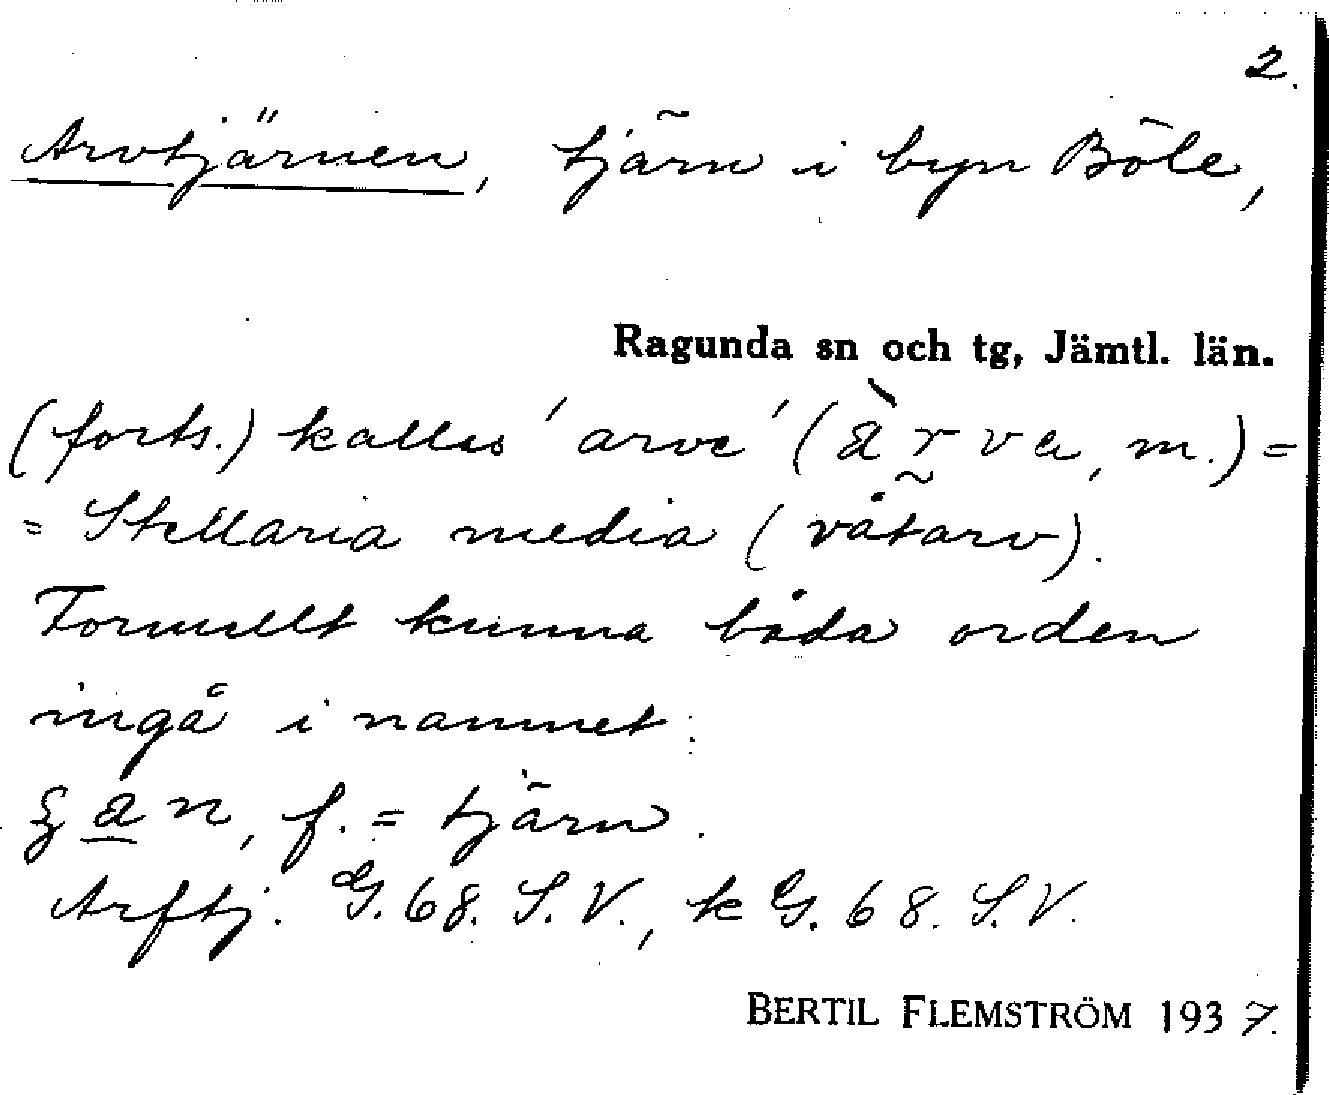 2.
Arvtjärnen, tjärn i byn Böle,
Ragunda sn och tg, Jämtl. län.
(forts.) kallas 'arve' (àrva, m.) =
= Stellaria media (våtarv).
Formellt kunna båda orden
ingå i namnet.
ʒan, f. = tjärn.
Arftj. G. 68. S.V., k G. 68. S.V.
BERTIL FLEMSTRÖM 1937.